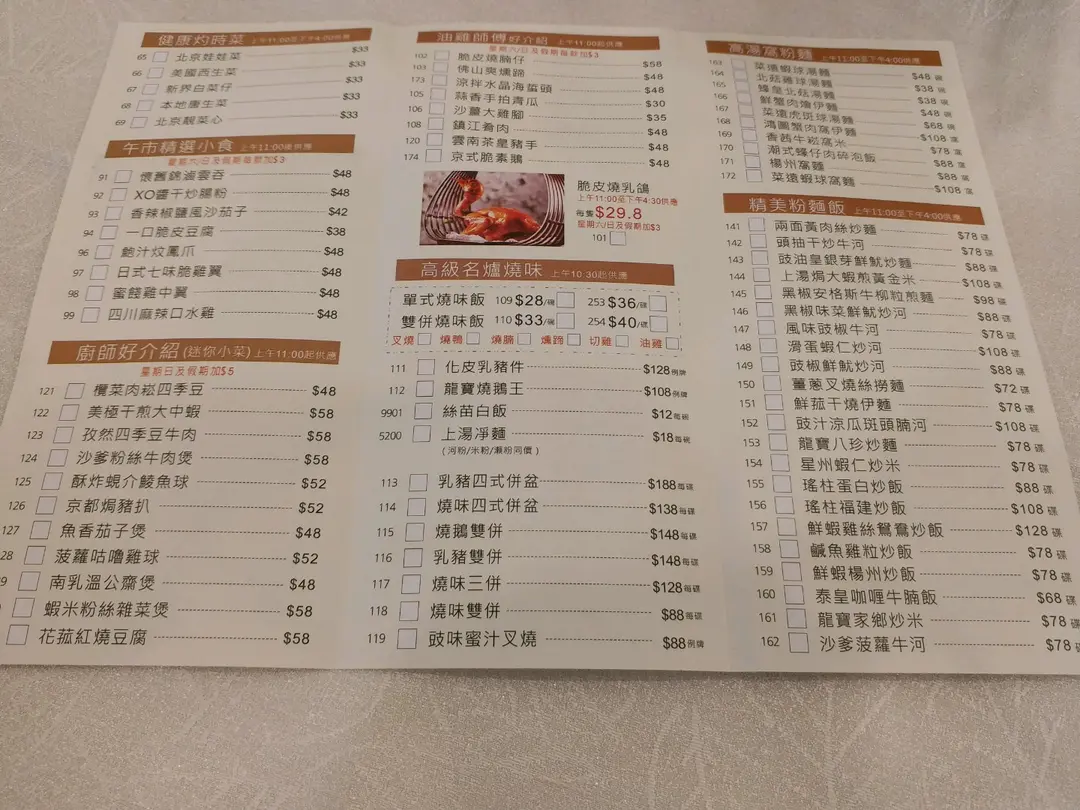 健康灼時菜 上午11:00至下午4:00供應
65 北京娃娃菜 $33
66 美國西生菜 $33
67 新界白菜仔 $33
68 本地唐生菜 $33
69 北京靚菜心 $33
午市精選小食 上午11:00後供應
星期六/日及假期每款加$3
91 懷舊錦滷雲吞 $48
92 XO醬干炒腸粉 $48
93 香辣椒鹽風沙茄子 $42
94 一口脆皮豆腐 $38
96 鮑汁炆鳳爪 $48
97 日式七味脆雞翼 $48
98 蜜餞雞中翼 $48
99 四川麻辣口水雞 $48
廚師好介紹 (迷你小菜) 上午11:00起供應
星期日及假期加$5
121 欖菜肉崧四季豆 $48
122 美極干煎大中蝦 $58
123 孜然四季豆牛肉 $58
124 沙爹粉絲牛肉煲 $58
125 酥炸蜆介鯪魚球 $52
126 京都焗豬扒 $52
127 魚香茄子煲 $48
28 菠蘿咕嚕雞球 $52
9 南乳溫公齋煲 $48
蝦米粉絲雜菜煲 $58
花菰紅燒豆腐 $58
油雞師傅好介紹 上午11:00起供應
星期六/日及假期每款加$3
102 脆皮燒腩仔 $58
103 佛山爽燻蹄 $48
173 涼拌水晶海蜇頭 $48
105 蒜香手拍青瓜 $30
106 沙薑大雞腳 $35
108 鎮江肴肉 $48
120 雲南茶皇豬手 $48
174 京式脆素鵝 $48
脆皮燒乳鴿
上午11:00至下午4:30供應
每隻$29.8
星期六/日及假期加$3
101
高級名爐燒味 上午10:30起供應
單式燒味飯 109 $28/碗 253 $36/碟
雙併燒味飯 110 $33/碗 254 $40/碟
叉燒 燒鴨 燒腩 燻蹄 切雞 油雞
111 化皮乳豬件 $128例牌
112 龍寶燒鵝王 $108例牌
9901 絲苗白飯 $12每碗
5200 上湯淨麵 $18每碗
(河粉/米粉/瀨粉同價)
113 乳豬四式併盆 $188每碟
114 燒味四式併盆 $138每碟
115 燒鵝雙併 $148每碟
116 乳豬雙併 $148每碟
117 燒味三併 $128每碟
118 燒味雙併 $88每碟
119 豉味蜜汁叉燒 $88例牌
高湯窩粉麵 上午11:00至下午4:00供應
163 菜遠蝦球湯麵 $48碗
164 北菇雞球湯麵 $38碗
165 蠔皇北菇湯麵 $38碗
166 鮮蟹肉燴伊麵 $48碗
167 菜遠虎斑球湯麵 $68碗
168 鴻圖蟹肉窩伊麵 $108窩
169 香茜牛崧窩米 $78窩
170 潮式蠔仔肉碎泡飯 $88窩
171 楊州窩麵 $88窩
172 菜遠蝦球窩麵 $108窩
精美粉麵飯 上午11:00至下午4:00供應
141 兩面黃肉絲炒麵 $78碟
142 頭抽干炒牛河 $78碟
143 豉油皇銀芽鮮魷炒麵 $88碟
144 上湯焗大蝦煎黃金米 $108碟
145 黑椒安格斯牛柳粒煎麵 $98碟
146 黑椒味菜鮮魷炒河 $88碟
147 風味豉椒牛河 $78碟
148 滑蛋蝦仁炒河 $108碟
149 豉椒鮮魷炒河 $88碟
150 薑蔥叉燒絲撈麵 $72碟
151 鮮菰干燒伊麵 $78碟
152 豉汁涼瓜斑頭腩河 $108碟
153 龍寶八珍炒麵 $78碟
154 星州蝦仁炒米 $78碟
155 瑤柱蛋白炒飯 $88碟
156 瑤柱福建炒飯 $108碟
157 鮮蝦雞絲鴛鴦炒飯 $128碟
158 鹹魚雞粒炒飯 $78碟
159 鮮蝦楊州炒飯 $78碟
160 泰皇咖喱牛腩飯 $68碟
161 龍寶家鄉炒米 $78碟
162 沙爹菠蘿牛河 $78碟